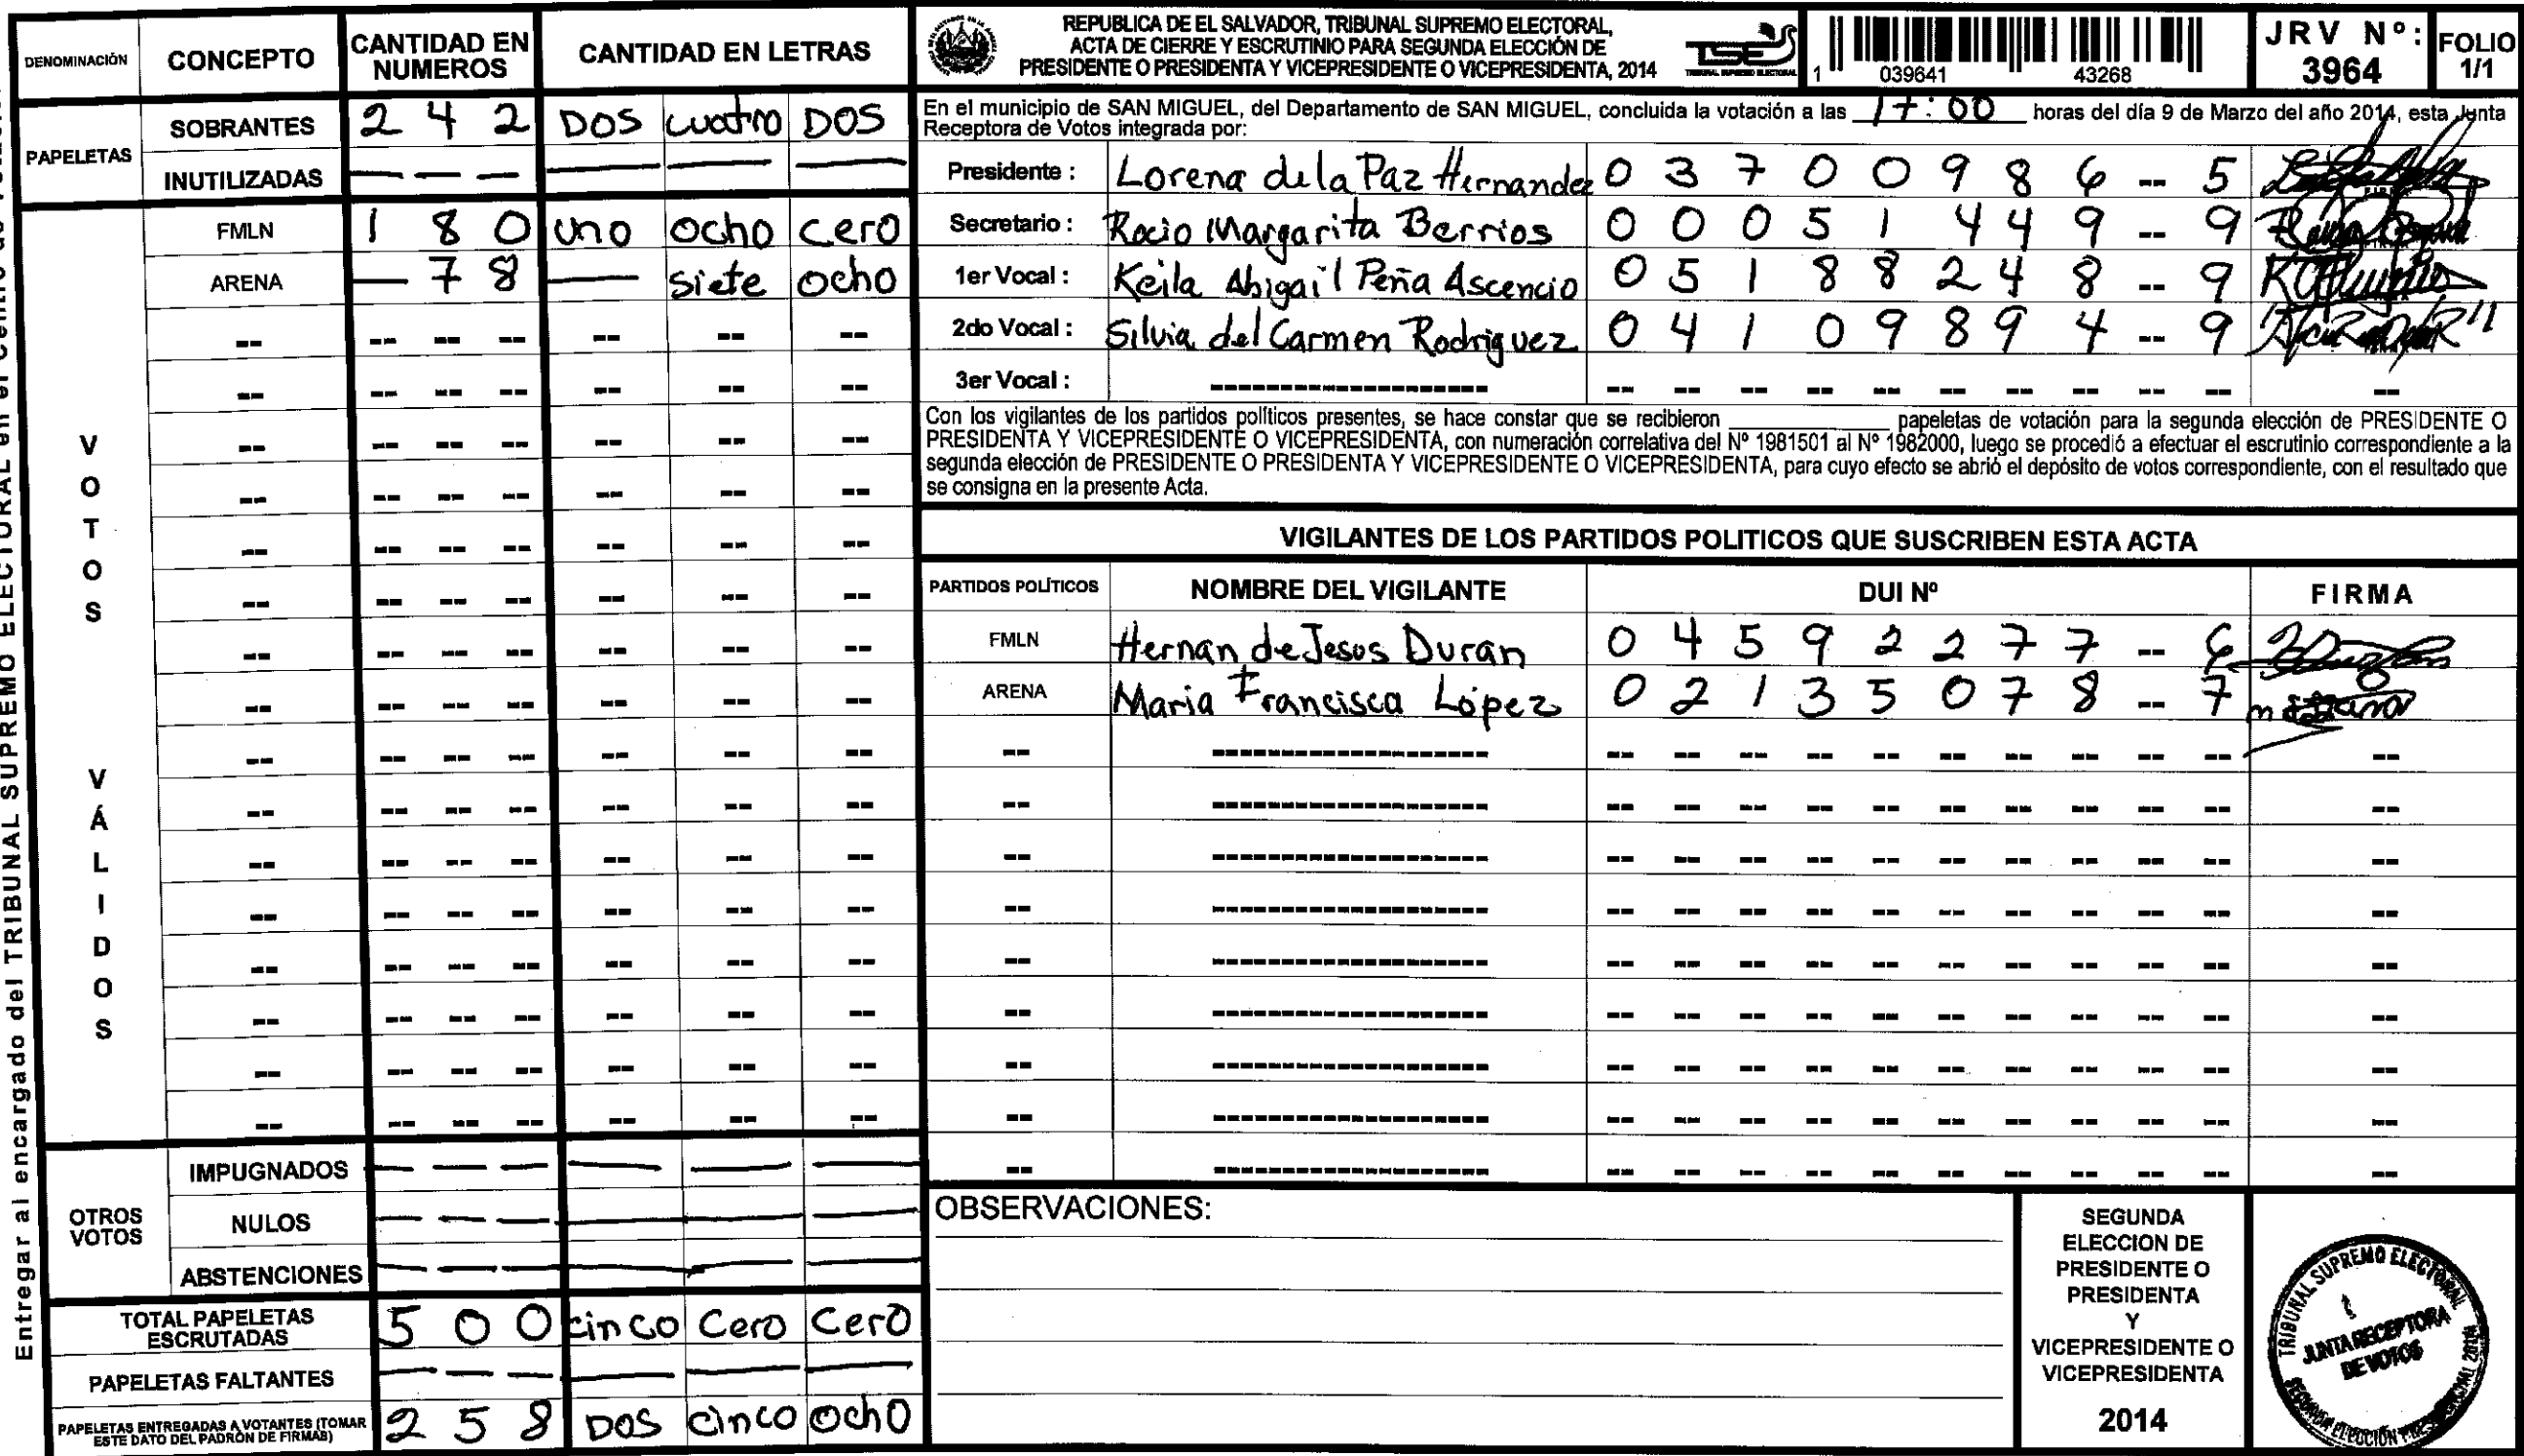 Entregar al encargado del TRIBUNAL SUPREMO ELECTORAL en el Centro de
DENOMINACIÓN CONCEPTO CANTIDAD EN NUMEROS CANTIDAD EN LETRAS
PAPELETAS
SOBRANTES 2 4 2 DOS cuatro DOS
INUTILIZADAS — — — — — —
VOTOS VÁLIDOS
FMLN 1 8 0 uno ocho cero
ARENA — 7 8 — siete ocho
OTROS VOTOS
IMPUGNADOS — — — — — —
NULOS — — — — — —
ABSTENCIONES — — — — — —
TOTAL PAPELETAS ESCRUTADAS 5 0 0 cinco Cero Cero
PAPELETAS FALTANTES — — — — — —
PAPELETAS ENTREGADAS A VOTANTES (TOMAR ESTE DATO DEL PADRÓN DE FIRMAS) 2 5 8 DOS cinco ocho
REPUBLICA DE EL SALVADOR, TRIBUNAL SUPREMO ELECTORAL,
ACTA DE CIERRE Y ESCRUTINIO PARA SEGUNDA ELECCIÓN DE
PRESIDENTE O PRESIDENTA Y VICEPRESIDENTE O VICEPRESIDENTA, 2014
TSE
TRIBUNAL SUPREMO ELECTORAL
1 039641 43268
JRV Nº: 3964
FOLIO 1/1
En el municipio de SAN MIGUEL, del Departamento de SAN MIGUEL, concluida la votación a las 17:00 horas del día 9 de Marzo del año 2014, esta Junta
Receptora de Votos integrada por:
Presidente : Lorena de la Paz Hernandez 0 3 7 0 0 9 8 6 -- 5
Secretario : Rocio Margarita Berrios 0 0 0 5 1 4 4 9 -- 9
1er Vocal : Keila Abigail Peña Ascencio 0 5 1 8 8 2 4 8 -- 9
2do Vocal : Silvia del Carmen Rodriguez 0 4 1 0 9 8 9 4 -- 9
3er Vocal : ------------------ -- -- -- -- -- -- -- -- -- -- --
Con los vigilantes de los partidos políticos presentes, se hace constar que se recibieron __________ papeletas de votación para la segunda elección de PRESIDENTE O
PRESIDENTA Y VICEPRESIDENTE O VICEPRESIDENTA, con numeración correlativa del Nº 1981501 al Nº 1982000, luego se procedió a efectuar el escrutinio correspondiente a la
segunda elección de PRESIDENTE O PRESIDENTA Y VICEPRESIDENTE O VICEPRESIDENTA, para cuyo efecto se abrió el depósito de votos correspondiente, con el resultado que
se consigna en la presente Acta.
VIGILANTES DE LOS PARTIDOS POLITICOS QUE SUSCRIBEN ESTA ACTA
PARTIDOS POLÍTICOS NOMBRE DEL VIGILANTE DUI Nº FIRMA
FMLN Hernan de Jesus Duran 0 4 5 9 2 2 7 7 -- 6
ARENA Maria Francisca López 0 2 1 3 5 0 7 8 -- 7
OBSERVACIONES:
SEGUNDA
ELECCION DE
PRESIDENTE O
PRESIDENTA
Y
VICEPRESIDENTE O
VICEPRESIDENTA
2014
TRIBUNAL SUPREMO ELECTORAL
JUNTA RECEPTORA
DE VOTOS